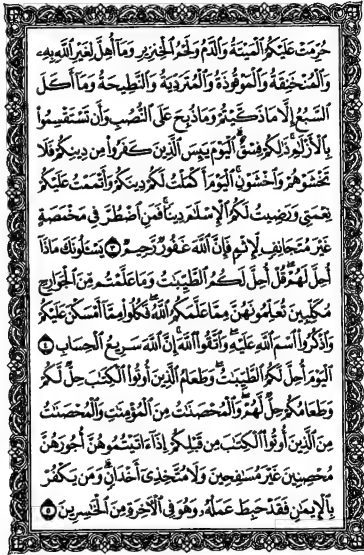 حُرِّمَتْ عَلَيْكُمُ ٱلْمَيْتَةُ وَٱلدَّمُ وَلَحْمُ ٱلْخِنزِيرِ وَمَآ أُهِلَّ لِغَيْرِ ٱللَّهِ بِهِۦ
وَٱلْمُنْخَنِقَةُ وَٱلْمَوْقُوذَةُ وَٱلْمُتَرَدِّيَةُ وَٱلنَّطِيحَةُ وَمَآ أَكَلَ
ٱلسَّبُعُ إِلَّا مَا ذَكَّيْتُمْ وَمَا ذُبِحَ عَلَى ٱلنُّصُبِ وَأَن تَسْتَقْسِمُوا۟
بِٱلْأَزْلَٰمِ ۚ ذَٰلِكُمْ فِسْقٌ ۗ ٱلْيَوْمَ يَئِسَ ٱلَّذِينَ كَفَرُوا۟ مِن دِينِكُمْ فَلَا
تَخْشَوْهُمْ وَٱخْشَوْنِ ۚ ٱلْيَوْمَ أَكْمَلْتُ لَكُمْ دِينَكُمْ وَأَتْمَمْتُ عَلَيْكُمْ
نِعْمَتِى وَرَضِيتُ لَكُمُ ٱلْإِسْلَٰمَ دِينًا ۚ فَمَنِ ٱضْطُرَّ فِى مَخْمَصَةٍ
غَيْرَ مُتَجَانِفٍ لِّإِثْمٍ ۙ فَإِنَّ ٱللَّهَ غَفُورٌ رَّحِيمٌ ٣ يَسْـَٔلُونَكَ مَاذَآ
أُحِلَّ لَهُمْ ۖ قُلْ أُحِلَّ لَكُمُ ٱلطَّيِّبَٰتُ ۙ وَمَا عَلَّمْتُم مِّنَ ٱلْجَوَارِحِ
مُكَلِّبِينَ تُعَلِّمُونَهُنَّ مِمَّا عَلَّمَكُمُ ٱللَّهُ ۖ فَكُلُوا۟ مِمَّآ أَمْسَكْنَ عَلَيْكُمْ
وَٱذْكُرُوا۟ ٱسْمَ ٱللَّهِ عَلَيْهِ ۖ وَٱتَّقُوا۟ ٱللَّهَ ۚ إِنَّ ٱللَّهَ سَرِيعُ ٱلْحِسَابِ ٤
ٱلْيَوْمَ أُحِلَّ لَكُمُ ٱلطَّيِّبَٰتُ ۖ وَطَعَامُ ٱلَّذِينَ أُوتُوا۟ ٱلْكِتَٰبَ حِلٌّ لَّكُمْ
وَطَعَامُكُمْ حِلٌّ لَّهُمْ ۖ وَٱلْمُحْصَنَٰتُ مِنَ ٱلْمُؤْمِنَٰتِ وَٱلْمُحْصَنَٰتُ
مِنَ ٱلَّذِينَ أُوتُوا۟ ٱلْكِتَٰبَ مِن قَبْلِكُمْ إِذَآ ءَاتَيْتُمُوهُنَّ أُجُورَهُنَّ
مُحْصِنِينَ غَيْرَ مُسَٰفِحِينَ وَلَا مُتَّخِذِىٓ أَخْدَانٍ ۗ وَمَن يَكْفُرْ
بِٱلْإِيمَٰنِ فَقَدْ حَبِطَ عَمَلُهُۥ وَهُوَ فِى ٱلْـَٔاخِرَةِ مِنَ ٱلْخَٰسِرِينَ ٥